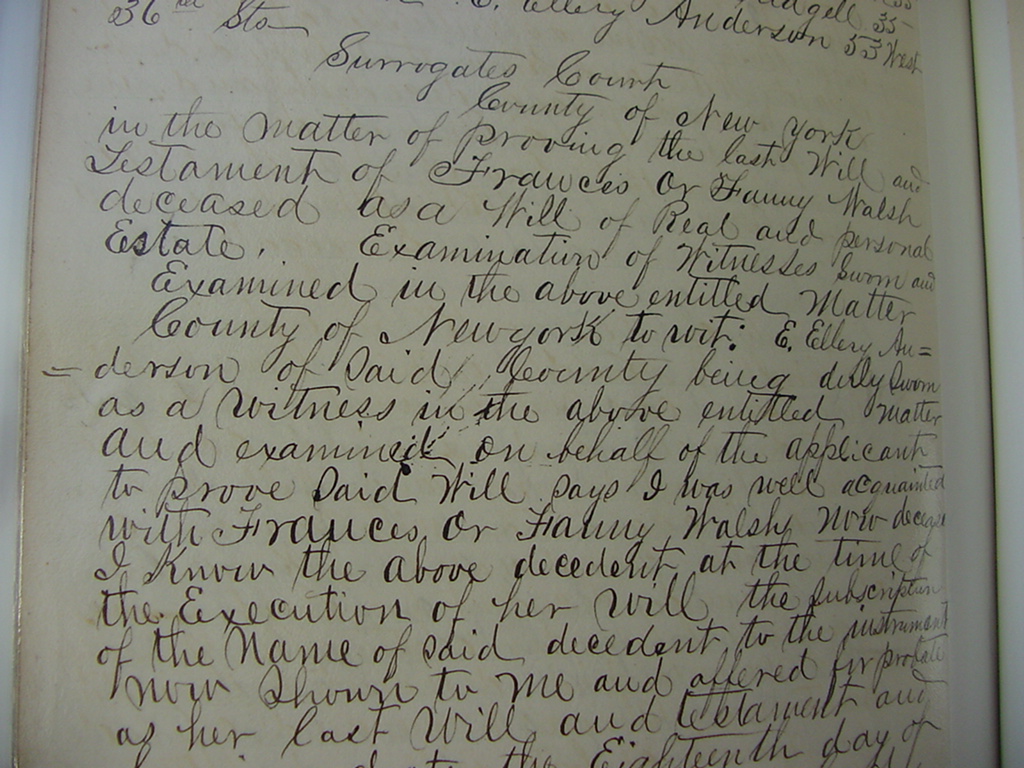 35
36th Sts E. Ellery Anderson 53 West
Surrogates Court
County of New York
in the matter of proving the last Will and
Testament of Frances Or Fanny Walsh
deceased as a Will of Real and personal
Estate. Examination of Witnesses Sworn and
Examined in the above entitled Matter
County of New york to wit: E. Ellery An=
=derson of Said County being duly Sworn
as a witness in the above entitled matter
and examined on behalf of the applicant
to prove Said Will says I was well acquainted
with Frances Or Fanny Walsh Now deceas
I Know the above decedent at the time of
the Execution of her will the Subscription
of the Name of said decedent to the instrument
now Shown to me and offered for probate
as her last Will and testament and
the Eighteenth day of